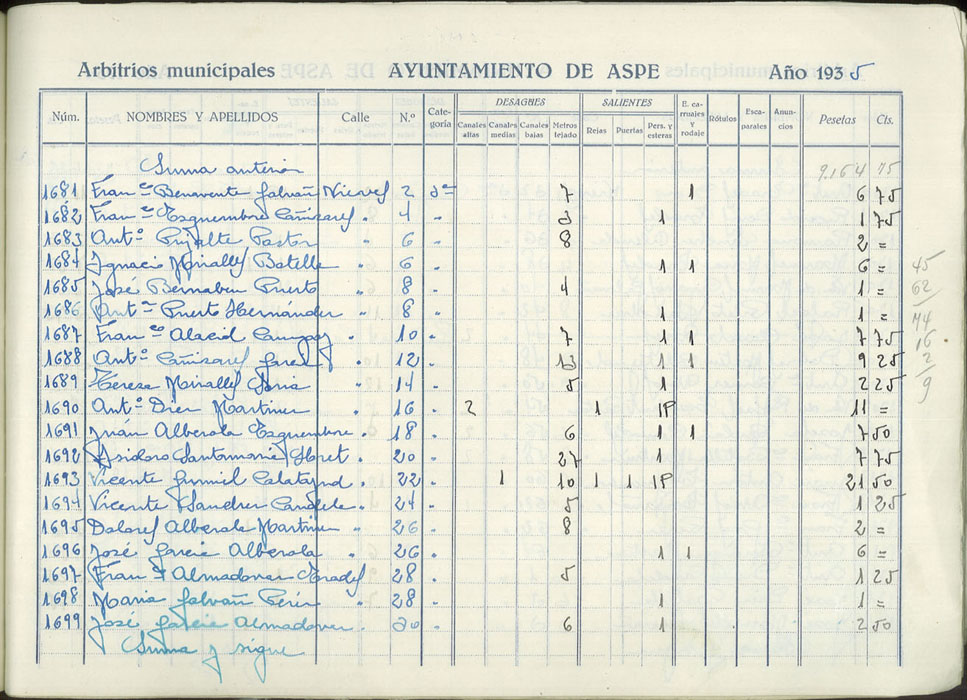 Arbitrios municipales AYUNTAMIENTO DE ASPE Año 1935
DESAGUES SALIENTES
Núm. NOMBRES Y APELLIDOS Calle N.º Categoría Canales altas Canales medias Canales bajas Metros tejado Rejas Puertas Pers. y esteras E. carruajes y rodaje Rótulos Escaparates Anuncios Pesetas Cts.
Suma anterior 9.164 75
1681 Fran.co Benavente Galvañ Nieves 2 3ª 7 1 6 75
1682 Fran.co Esquembre Cañizares " 4 " 3 1 1 75
1683 Ant.º Pujalte Pastor " 6 " 8 2 =
1684 Ignacio Miralles Botella " 6 " 1 1 6 =
1685 José Bernabeu Puerto " 8 " 4 1 =
1686 Ant.º Puerto Hernández " 8 " 1 1 =
1687 Fran.co Alacid " 10 " 7 1 1 7 75
1688 Ant.º Cañizares García " 12 " 13 1 1 9 25
1689 Teresa Miralles Soria " 14 " 5 1 2 25
1690 Ant.º Diez Martinez " 16 " 2 1 1P 11 =
1691 Juán Alberola Esquembre " 18 " 6 1 1 7 50
1692 Isidoro Santamaria Lloret " 20 " 27 1 7 75
1693 Vicente Gumiel Calatayud " 22 " 1 10 1 1 1P 21 50
1694 Vicente Sanchez Candela " 24 " 5 1 25
1695 Dolores Alberola Martinez " 26 " 8 2 =
1696 José Garcia Alberola " 26 " 1 1 6 =
1697 Fran.co Almodovar Prades " 28 " 5 1 25
1698 Maria Galvañ Pérez " 28 " 1 1 =
1699 José Garcia Almodover " 30 " 6 1 2 50
Suma y sigue
45
62
74
16
2
9